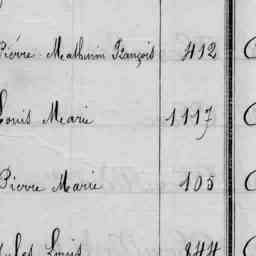 Pierre Mathurin François 412
Louis Marie 1117
Pierre Marie 105
Jules Louis 844